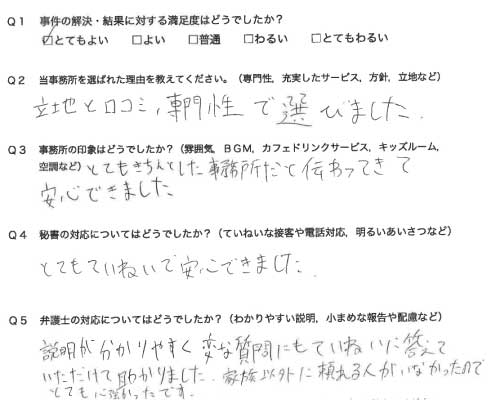 Q1 事件の解決・結果に対する満足度はどうでしたか?
☑とてもよい □よい □普通 □わるい □とてもわるい
Q2 当事務所を選ばれた理由を教えてください。(専門性, 充実したサービス, 方針, 立地など)
立地と口コミ, 専門性で選びました.
Q3 事務所の印象はどうでしたか?(雰囲気, BGM, カフェドリンクサービス, キッズルーム,
空調など) とてもきちんとした事務所だと伝わってきて
安心できました
Q4 秘書の対応についてはどうでしたか?(ていねいな接客や電話対応, 明るいあいさつなど)
とてもていねいで安心できました.
Q5 弁護士の対応についてはどうでしたか?(わかりやすい説明, 小まめな報告や配慮など)
説明が分かりやすく変な質問にもていねいに答えて
いただけて助かりました. 家族以外に頼れる人がいなかったので
とても心強かったです.